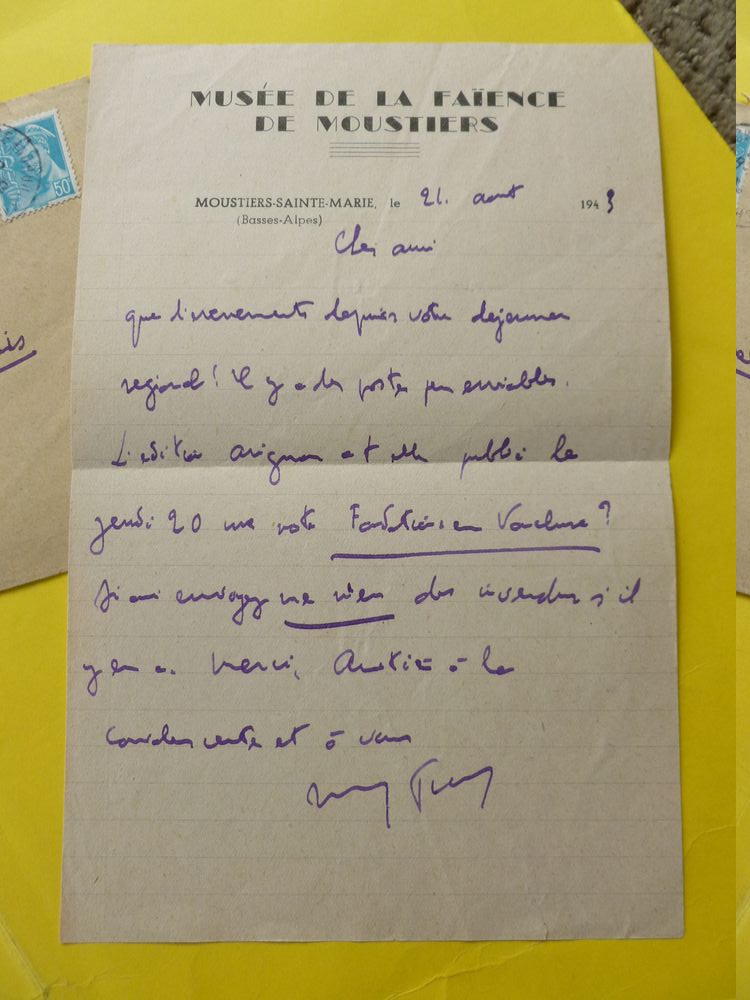 MUSÉE DE LA FAÏENCE
DE MOUSTIERS
MOUSTIERS-SAINTE-MARIE, le 21. aout 1943
(Basses-Alpes)
Cher ami
que d'evenements depuis votre dejeuner
regional! Il y a des postes peu enviables.
L'edition avignon a t elle publié le
jeudi 20 une note en Vaucluse?
Si oui envoyez me des invendus s'il
y en a. Merci, à la
et à vous
50